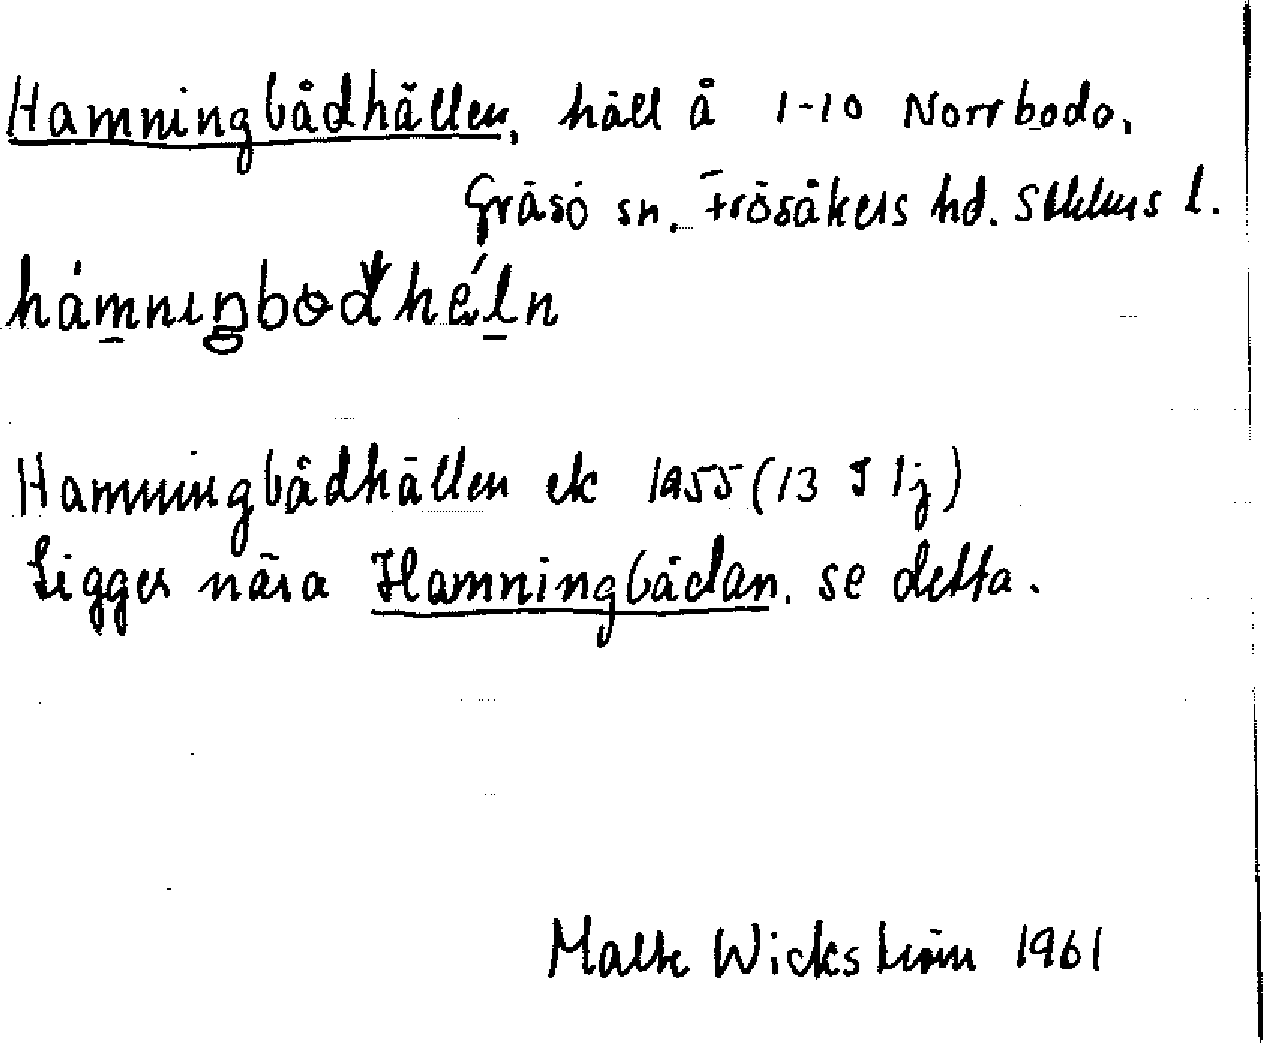 Hamningbådhällen, häll å 1-10 Norrboda,
Gräsö sn. Frösåkers hd. Sthlms l.
hámningbodhéln
Hamningbådhällen ek 1955 (13 I 1j)
Ligger nära Hamningbådan, se detta.
Malte Wickström 1961